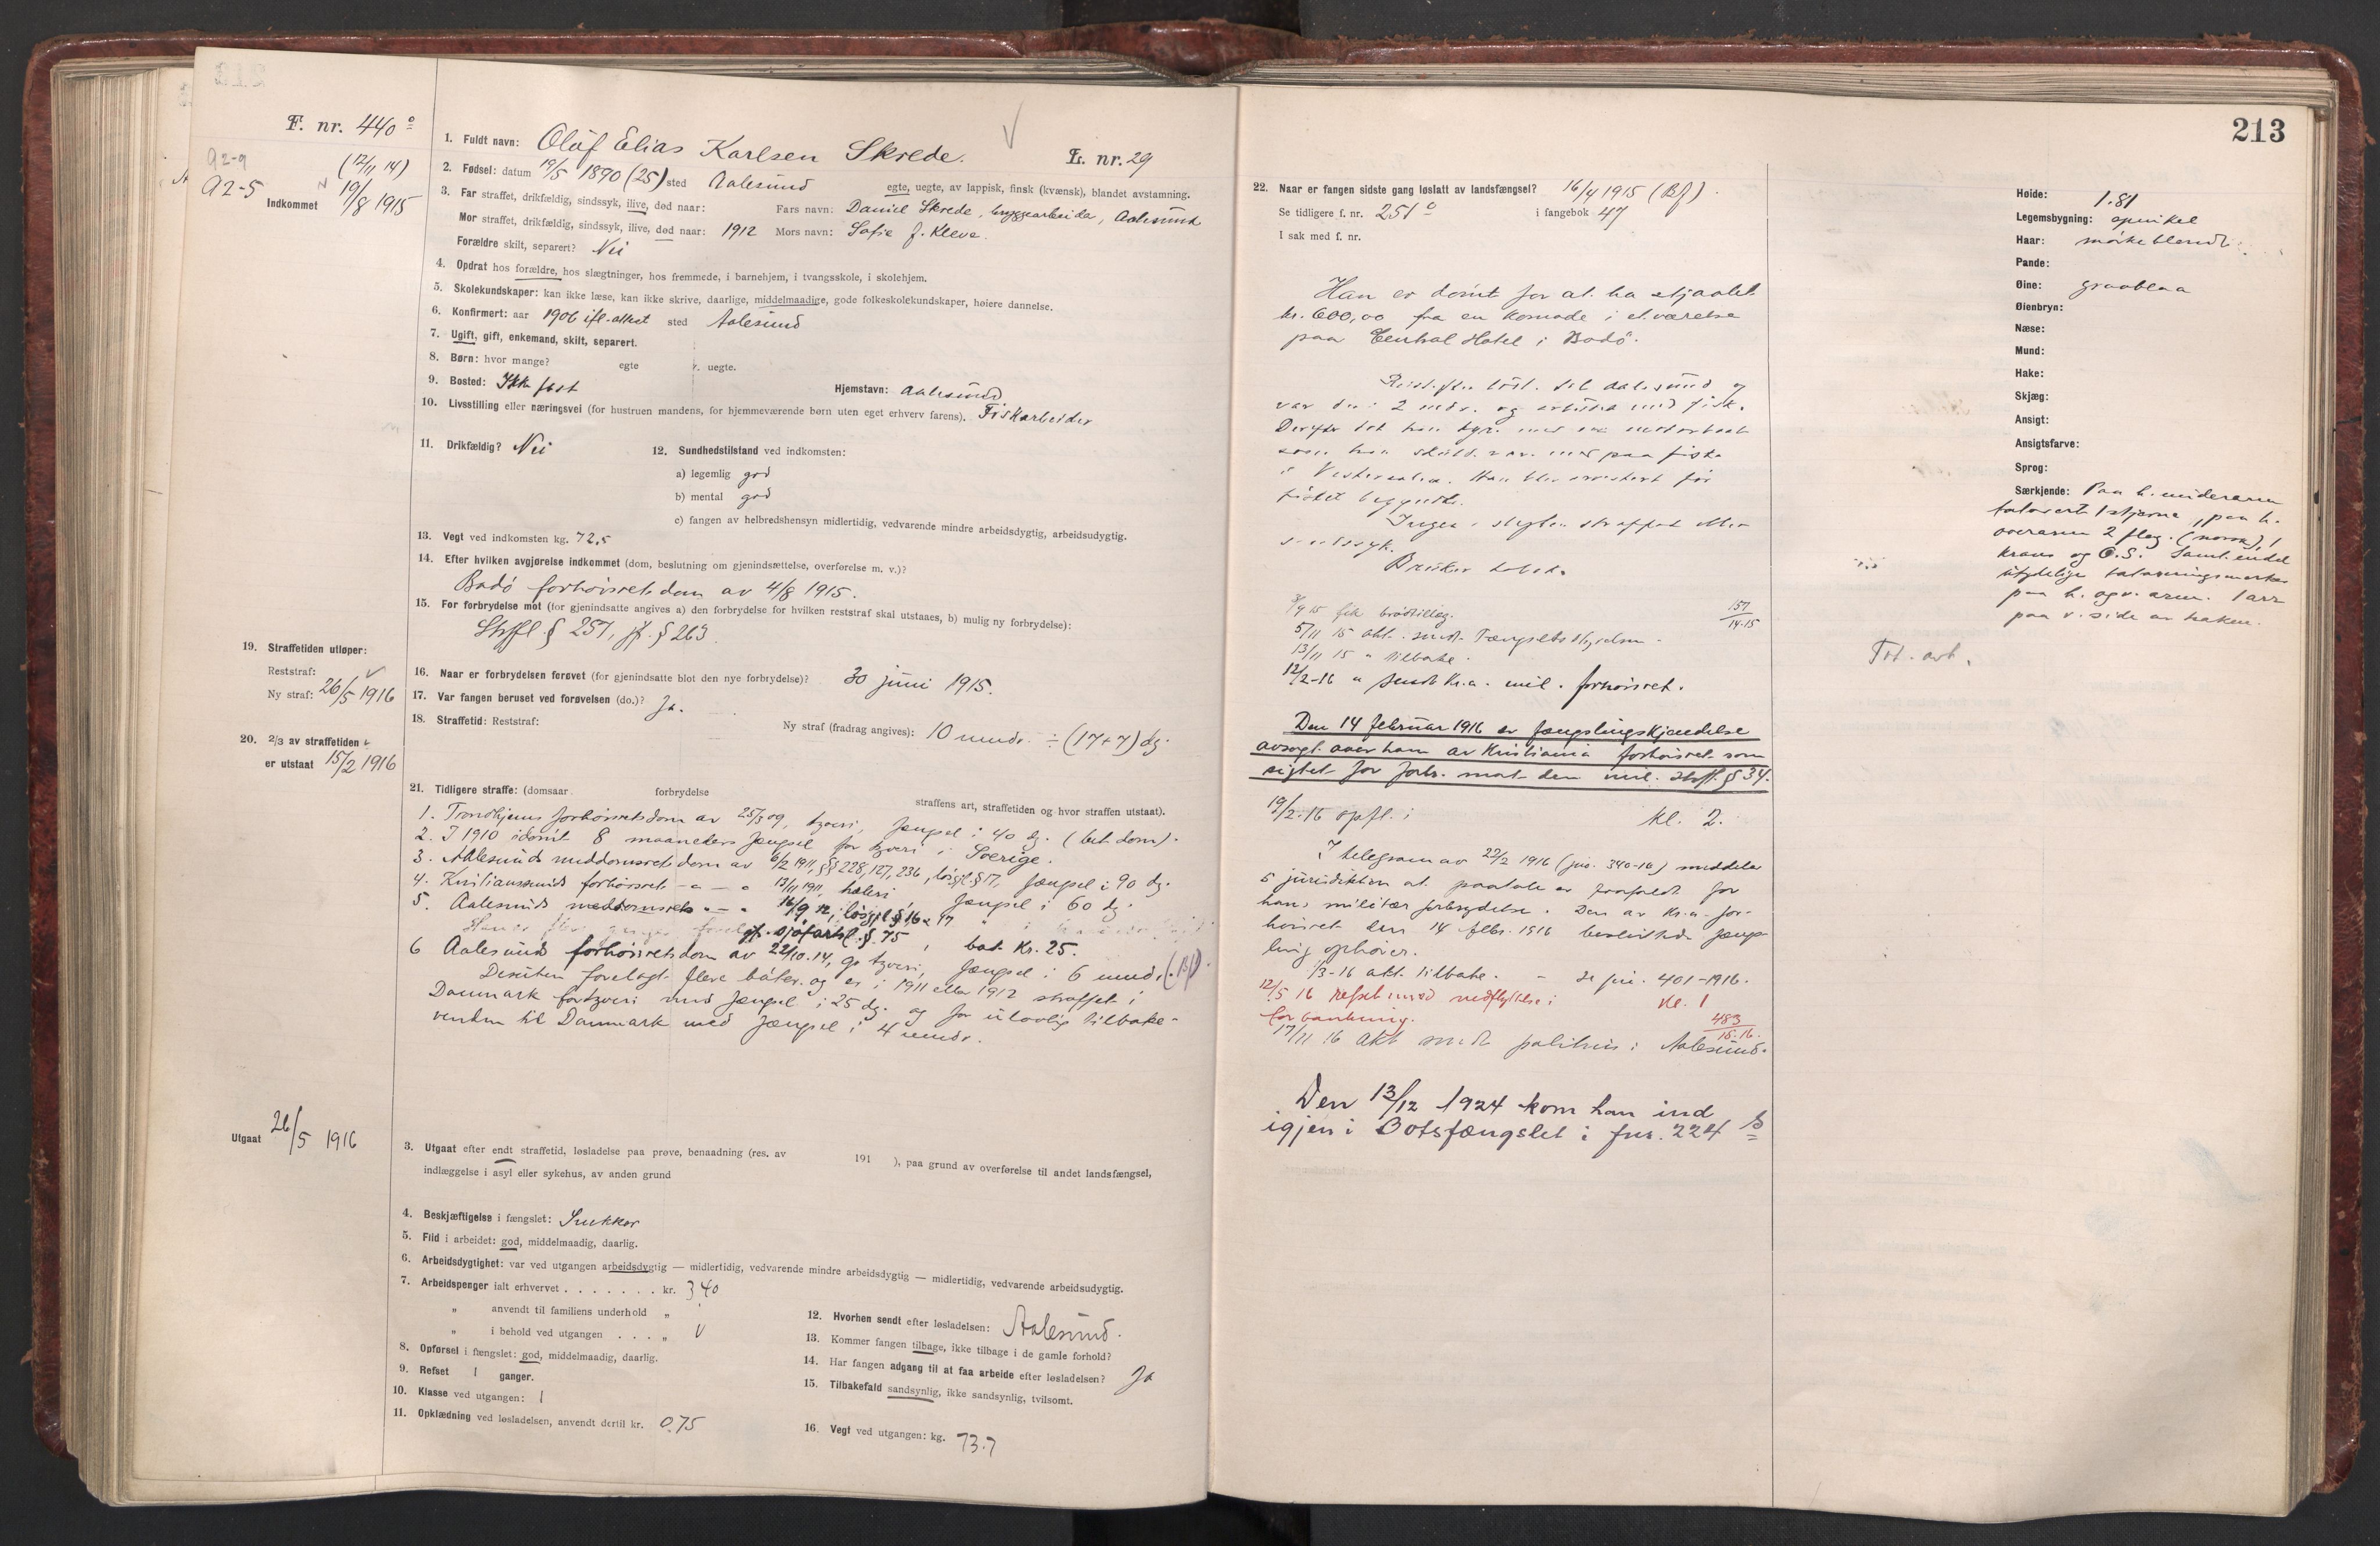 F. nr. 440 o
A2-9
(12/11 14)
A2-5
Indkommet 19/8 1915
1. Fuldt navn: Oluf Elias Karlsen Skrede.
L. nr. 29
2. Fødsel: datum 19/5 1890 (25) sted Aalesund
egte, uegte, av lappisk, finsk (kvænsk), blandet avstamning.
3. Far straffet, drikfældig, sindssyk, ilive, død naar: Fars navn: Daniel Skrede, bryggearbeider, Aalesund
Mor straffet, drikfældig, sindssyk, ilive, død naar: 1912 Mors navn: Sofie f. Kleve.
Forældre skilt, separert? Nei
4. Opdrat hos forældre, hos slægtninger, hos fremmede, i barnehjem, i tvangsskole, i skolehjem.
5. Skolekundskaper: kan ikke læse, kan ikke skrive, daarlige, middelmaadige, gode folkeskolekundskaper, høiere dannelse.
6. Konfirmert: aar 1906 ifl. attest sted Aalesund
7. Ugift, gift, enkemand, skilt, separert.
8. Børn: hvor mange? egte uegte.
9. Bosted: Ikke fast Hjemstavn: Aalesund
10. Livsstilling eller næringsvei (for hustruen mandens, for hjemmeværende børn uten eget erhverv farens). Fiskarbeider
11. Drikfældig? Nei 12. Sundhedstilstand ved indkomsten:
a) legemlig god
b) mental god
c) fangen av helbredshensyn midlertidig, vedvarende mindre arbeidsdygtig, arbeidsudygtig.
13. Vegt ved indkomsten kg. 72,5
14. Efter hvilken avgjørelse indkommet (dom, beslutning om gjenindsættelse, overførelse m. v.)?
Bodø forhørsretsdom av 4/8 1915.
15. For forbrydelse mot (for gjenindsatte angives a) den forbrydelse for hvilken reststraf skal utstaaes, b) mulig ny forbrydelse):
Strfl. § 257, jf. § 263.
16. Naar er forbrydelsen forøvet (for gjenindsatte blot den nye forbrydelse)? 30 juni 1915.
17. Var fangen beruset ved forøvelsen (do.)? Ja.
18. Straffetid: Reststraf: Ny straf (fradrag angives): 10 mndr. ÷ (17+7) dg
19. Straffetiden utløper:
Reststraf:
Ny straf: 26/5 1916
20. 2/3 av straffetiden
er utstaat 15/2 1916
21. Tidligere straffe: (domsaar forbrydelse straffens art, straffetiden og hvor straffen utstaat).
1. Trondhjems forhørsretsdom av 25/3 09, tyveri, fængsel i 40 dg. (bet. dom).
2. I 1910 idømt 8 maaneders fængsel for tyveri i Sverige.
3. Aalesunds meddomsretsdom av 6/2 1911, §§ 228, 127, 236, løsgjl. § 17, fængsel i 90 dg.
4. Kristianssunds forhørsret - " - " 13/11 1911, hæleri, fængsel i 60 dg.
5. Aalesunds meddomsrets " - " 16/9 12, løsgjl. § 16 & 17
jf. sjøfartsl. § 75, bot kr. 25.
6 Aalesunds forhørsretsdom av 22/10.14, gr. tyveri, fængsel i 6 mndr. (Bf).
Desuten forelagt flere bøter og er i 1911 eller 1912 straffet i
Danmark for tyveri med fængsel i 25 dg. og for ulovlig tilbake-
venden til Danmark med fængsel i 4 mndr.
Utgaat 26/5 1916
3. Utgaat efter endt straffetid, løsladelse paa prøve, benaadning (res. av 191 ), paa grund av overførelse til andet landsfængsel,
indlæggelse i asyl eller sykehus, av anden grund
4. Beskjæftigelse i fængslet: Snekker
5. Flid i arbeidet: god, middelmaadig, daarlig.
6. Arbeidsdygtighet: var ved utgangen arbeidsdygtig — midlertidig, vedvarende mindre arbeidsdygtig — midlertidig, vedvarende arbeidsudygtig.
7. Arbeidspenger ialt erhvervet . . . . . . . kr. 3,40
" anvendt til familiens underhold "
" i behold ved utgangen . . . "
8. Opførsel i fængslet: god, middelmaadig, daarlig.
9. Refset 1 ganger.
10. Klasse ved utgangen: 1
11. Opklædning ved løsladelsen, anvendt dertil kr. 0.75
12. Hvorhen sendt efter løsladelsen: Aalesund.
13. Kommer fangen tilbage, ikke tilbage i de gamle forhold?
14. Har fangen adgang til at faa arbeide efter løsladelsen? Ja
15. Tilbakefald sandsynlig, ikke sandsynlig, tvilsomt.
16. Vegt ved utgangen: kg. 73.7
213
22. Naar er fangen sidste gang løslatt av landsfængsel? 16/4 1915 (Bf).
Se tidligere f. nr. 251 o i fangebok 47
I sak med f. nr.
Han er dømt for at ha stjaalet
kr. 600,00 fra en komode i et værelse
paa Central Hotel i Bodø.
Reiste efter løsl. til Aalesund og
var der i 2 mdr. og arbeidet med fisk.
Derefter tok han hyre med en motorbaat
som han skulde være med paa fiske
i Vesteraalen. Han blev arrestert før
fisket begyndte.
Ingen i slegten straffet eller
sindssyk.
Bruker tobak.
9 15 fik brødtillæg. 157/14-15
5/11 15 akt. sendt Fængselsstyrelsen.
13/11 15 " tilbake.
12/2-16 " sendt Kr.a. mil. forhørsret.
Den 14 februar 1916 er fængslingskjendelse
avsagt over ham av Kristiania forhørsret som
sigtet for forbr. mot den mil. strfl. § 34.
19/2.16 opfl. i kl. 2.
I telegram av 22/2 1916 (jnr. 340-16) meddeler
5 jurisdiktion at paatale er frafaldt for
hans militær forbrydelse. Den av Kr.a. for-
hørsret den 14 febr. 1916 besluttede fængs-
ling ophører.
1/3-16 akt. tilbake. - se jnr. 401-1916.
12/5 16 refset med nedflyttelse i kl. 1
for bankning. 483/15-16.
17/11 16 akt sendt politiets i Aalesund.
Den 13/12 1924 kom han ind
igjen i Botsfængslet i fnr. 224 b
Høide: 1.81
Legemsbygning: spinkel
Haar: mørkeblond
Pande:
Øine: graablaa
Øienbryn:
Næse:
Mund:
Hake:
Skjæg:
Ansigt:
Ansigtsfarve:
Sprog:
Særkjende: Paa h. underarm
tatovert 1 stjerne, paa h.
overarm 2 flag (norsk), 1
krans og O.S. Samt endel
utydelige tatoveringsmerker
paa h. og v. arm. 1 arr
paa v. side av haken.